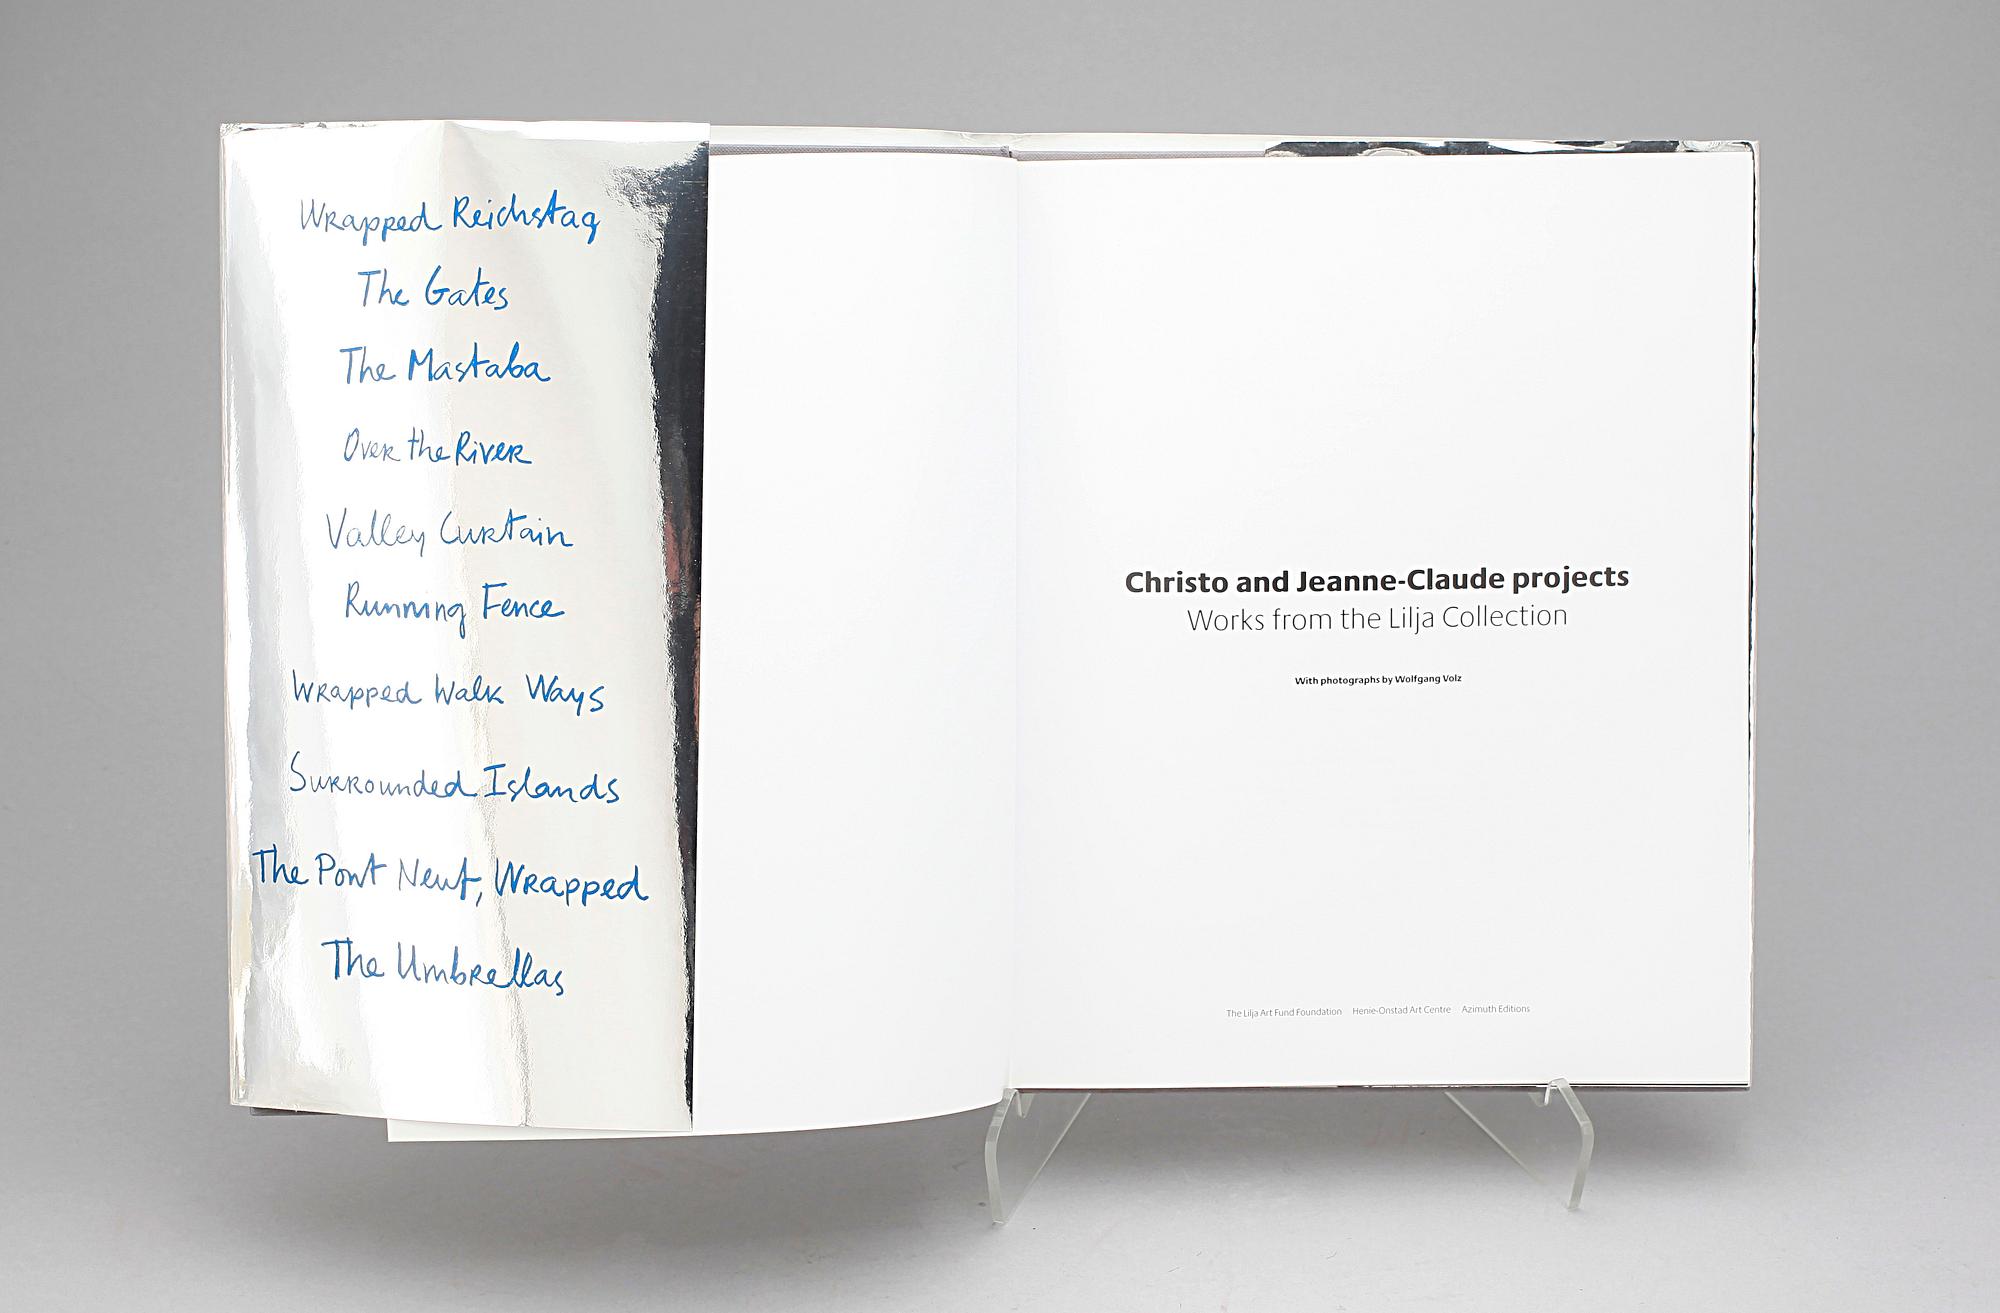 Wrapped Reichstag
The Gates
The Mastaba
Over the River
Valley Curtain
Running Fence
Wrapped Walk Ways
Surrounded Islands
The Pont Neuf, Wrapped
The Umbrellas
Christo and Jeanne-Claude projects
Works from the Lilja Collection
With photographs by Wolfgang Volz
The Lilja Art Fund Foundation Henie-Onstad Art Centre Azimuth Editions